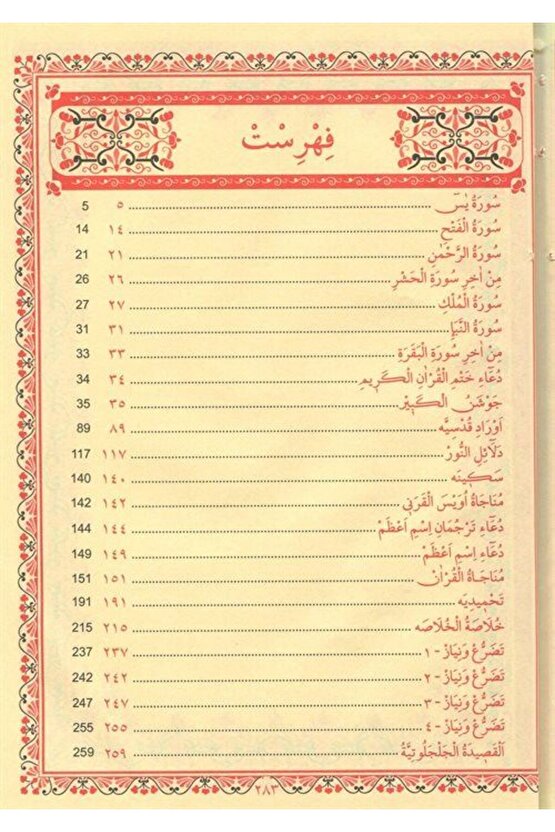 فِهْرِسْتْ
سُورَةُ يٰسٓ ٥ 5
سُورَةُ الْفَتْحِ ١٤ 14
سُورَةُ الرَّحْمٰنِ ٢١ 21
مِنْ اٰخِرِ سُورَةِ الْحَشْرِ ٢٦ 26
سُورَةُ الْمُلْكِ ٢٧ 27
سُورَةُ النَّبَأِ ٣١ 31
مِنْ اٰخِرِ سُورَةِ الْبَقَرَةِ ٣٣ 33
دُعَٓاءِ خَتْمِ الْقُرْاٰنِ الْكَرِيمِ ٣٤ 34
جَوْشَنُ الْكَبِيرْ ٣٥ 35
اَوْرَادِ قُدْسِيَّه ٨٩ 89
دَلَٓائِلِ النُّورْ ١١٧ 117
سَكِينَه ١٤٠ 140
مُنَاجَاةُ اُوَيْسَ الْقَرَنِى ١٤٢ 142
دُعَٓاءِ تَرْجُمَانِ اِسْمِ اَعْظَمْ ١٤٤ 144
دُعَٓاءِ اِسْمِ اَعْظَمْ ١٤٩ 149
مُنَاجَاةُ الْقُرْاٰنْ ١٥١ 151
تَحْمِيدِيَه ١٩١ 191
خُلَاصَةُ الْخُلَاصَه ٢١٥ 215
تَضَرُّعْ وَنِيَازْ - ١ ٢٣٧ 237
تَضَرُّعْ وَنِيَازْ - ٢ ٢٤٢ 242
تَضَرُّعْ وَنِيَازْ - ٣ ٢٤٧ 247
تَضَرُّعْ وَنِيَازْ - ٤ ٢٥٥ 255
اَلْقَصِيدَةُ الْجَلْجَلُوتِيَّةُ ٢٥٩ 259
٢٨٣